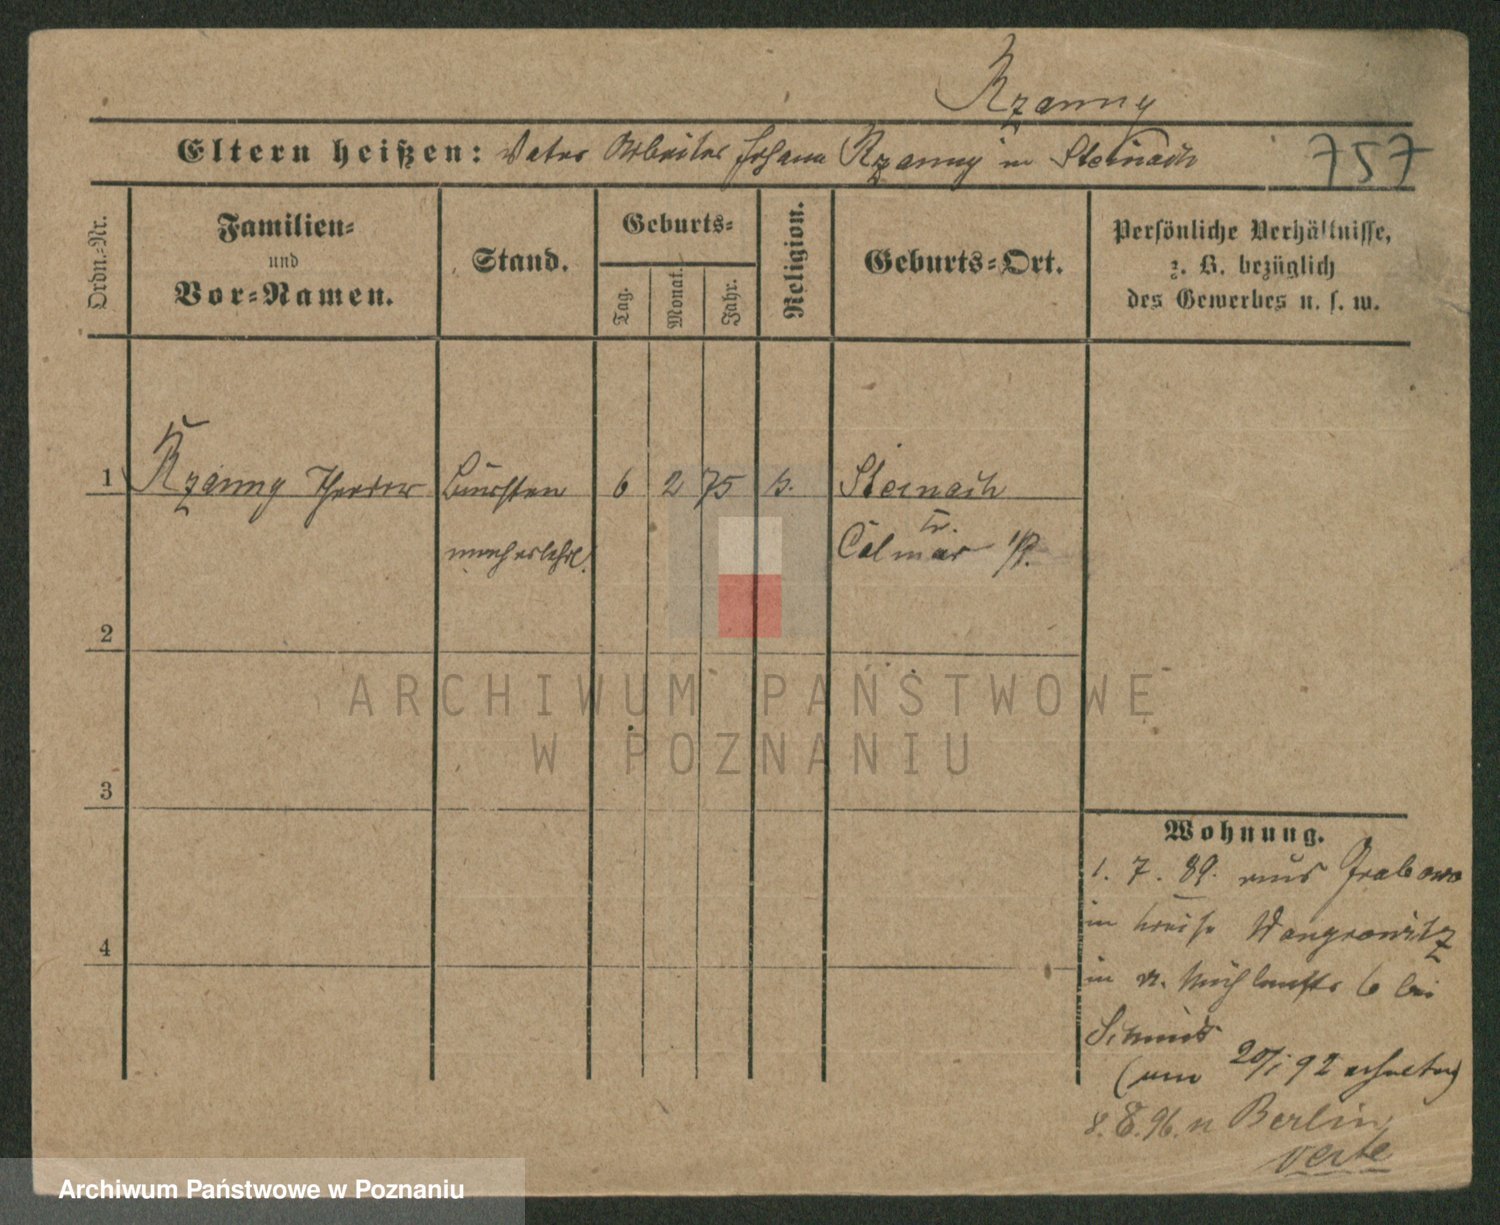 Rzanny
Eltern heißen: Vater Arbeiter Johann Rzanny in Steinach 757
Ordn.-Nr.
Familien-
und
Vor-Namen.
Stand.
Geburts-
Tag.
Monat.
Jahr.
Religion.
Geburts-Ort.
Persönliche Verhältnisse,
z. B. bezüglich
des Gewerbes u. s. w.
1 Rzanny Theodor Bürsten 6 2 75 k. Steinach
macherlehrl. Colmar i/P.
2
3
4
Wohnung.
1. 7. 89. aus Grabowo
im Kreise Wongrowitz
in 6 bei
Schmidt
(am 20/1 92 erhalten)
8. 8. 96. n Berlin
verte
ARCHIWUM PAŃSTWOWE
W POZNANIU
Archiwum Państwowe w Poznaniu